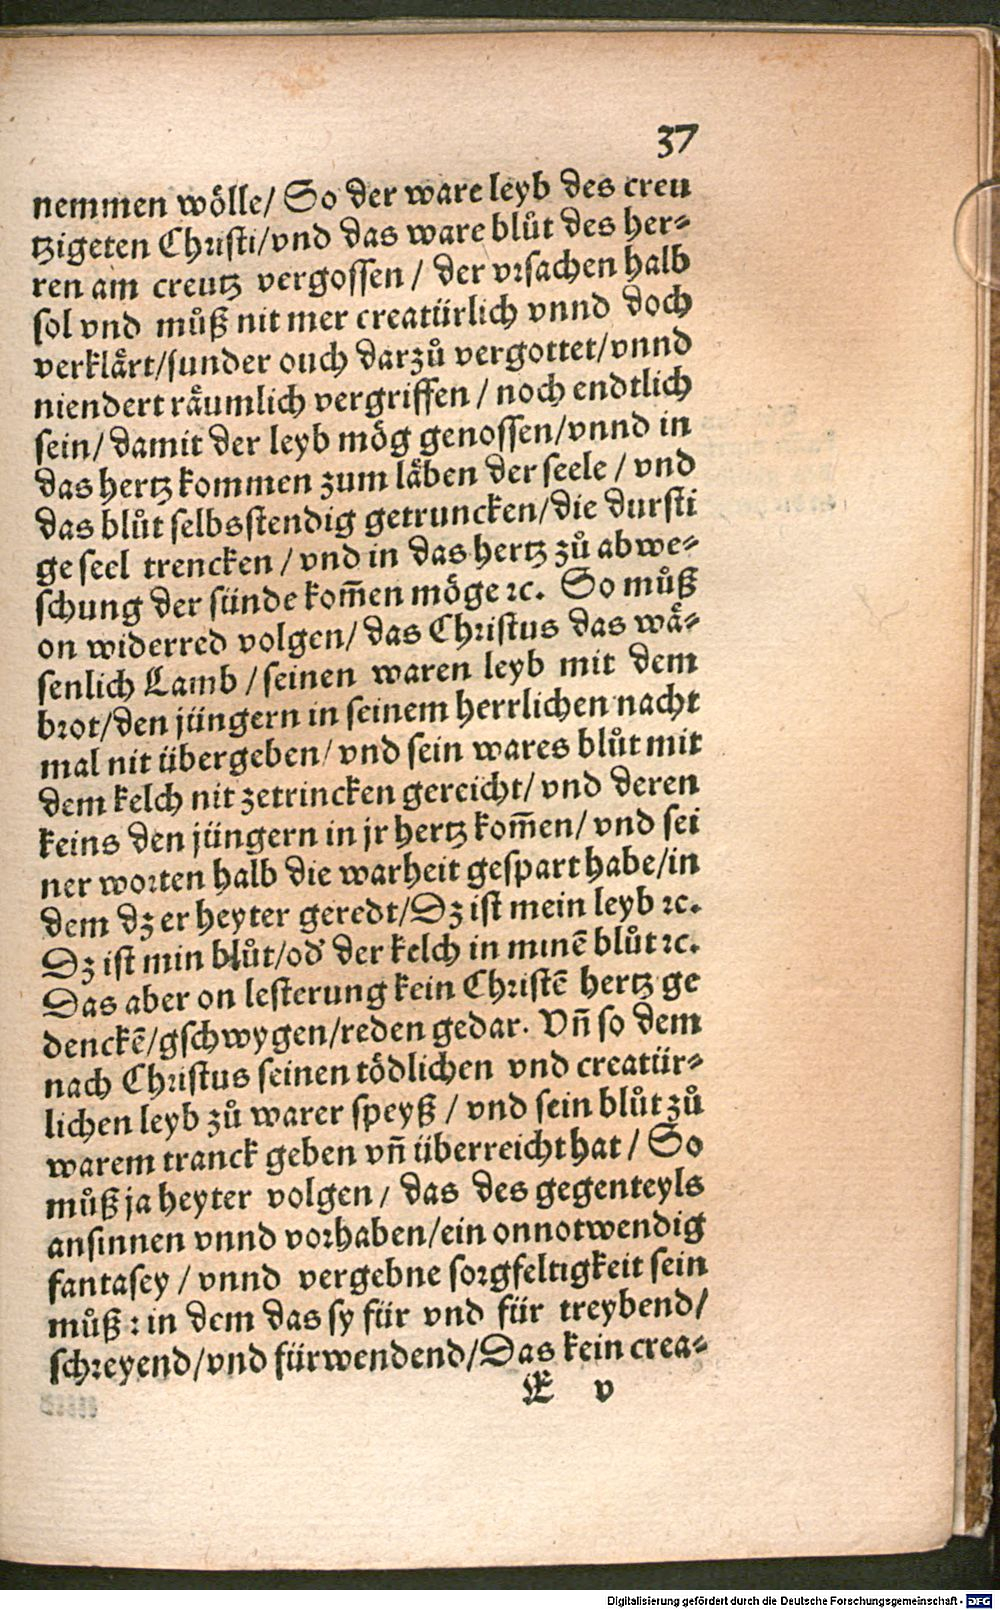 37
nemmen wölle/ So der ware leyb des creu
tzigeten Christi/vnd das ware blůt des her-
ren am creutz vergossen / der vrsachen halb
sol vnd můß nit mer creatürlich vnnd doch
verklårt/sunder ouch darzů vergottet/vnnd
niendert råumlich vergriffen / noch endtlich
sein/ damit der leyb mög genossen/vnnd in
das hertz kommen zum låben der seele / vnd
das blůt selbsstendig getruncken/die dursti
ge seel trencken / vnd in das hertz zů abwe-
schung der sünde kom̄en möge ꝛc. So můß
on widerred volgen/ das Christus das wå-
senlich Lamb / seinen waren leyb mit dem
brot/den jüngern in seinem herrlichen nacht
mal nit übergeben/ vnd sein wares blůt mit
dem kelch nit zetrincken gereicht/ vnd deren
keins den jüngern in jr hertz kom̄en/ vnd sei
ner worten halb die warheit gespart habe/in
dem dz er heyter geredt/Dz ist mein leyb ꝛc.
Dz ist min blůt/od' der kelch in minē blůt ꝛc.
Das aber on lesterung kein Christē hertz ge
denckē/gschwygen/reden gedar. Vn̄ so dem
nach Christus seinen tödlichen vnd creatür-
lichen leyb zů warer speyß / vnd sein blůt zů
warem tranck geben vn̄ überreicht hat / So
můß ja heyter volgen / das des gegenteyls
ansinnen vnnd vorhaben/ein onnotwendig
fantasey / vnnd vergebne sorgfeltigkeit sein
můß : in dem das sy für vnd für treybend/
schreyend/vnd fürwendend/Das kein crea-
E v
Digitalisierung gefördert durch die Deutsche Forschungsgemeinschaft - DFG